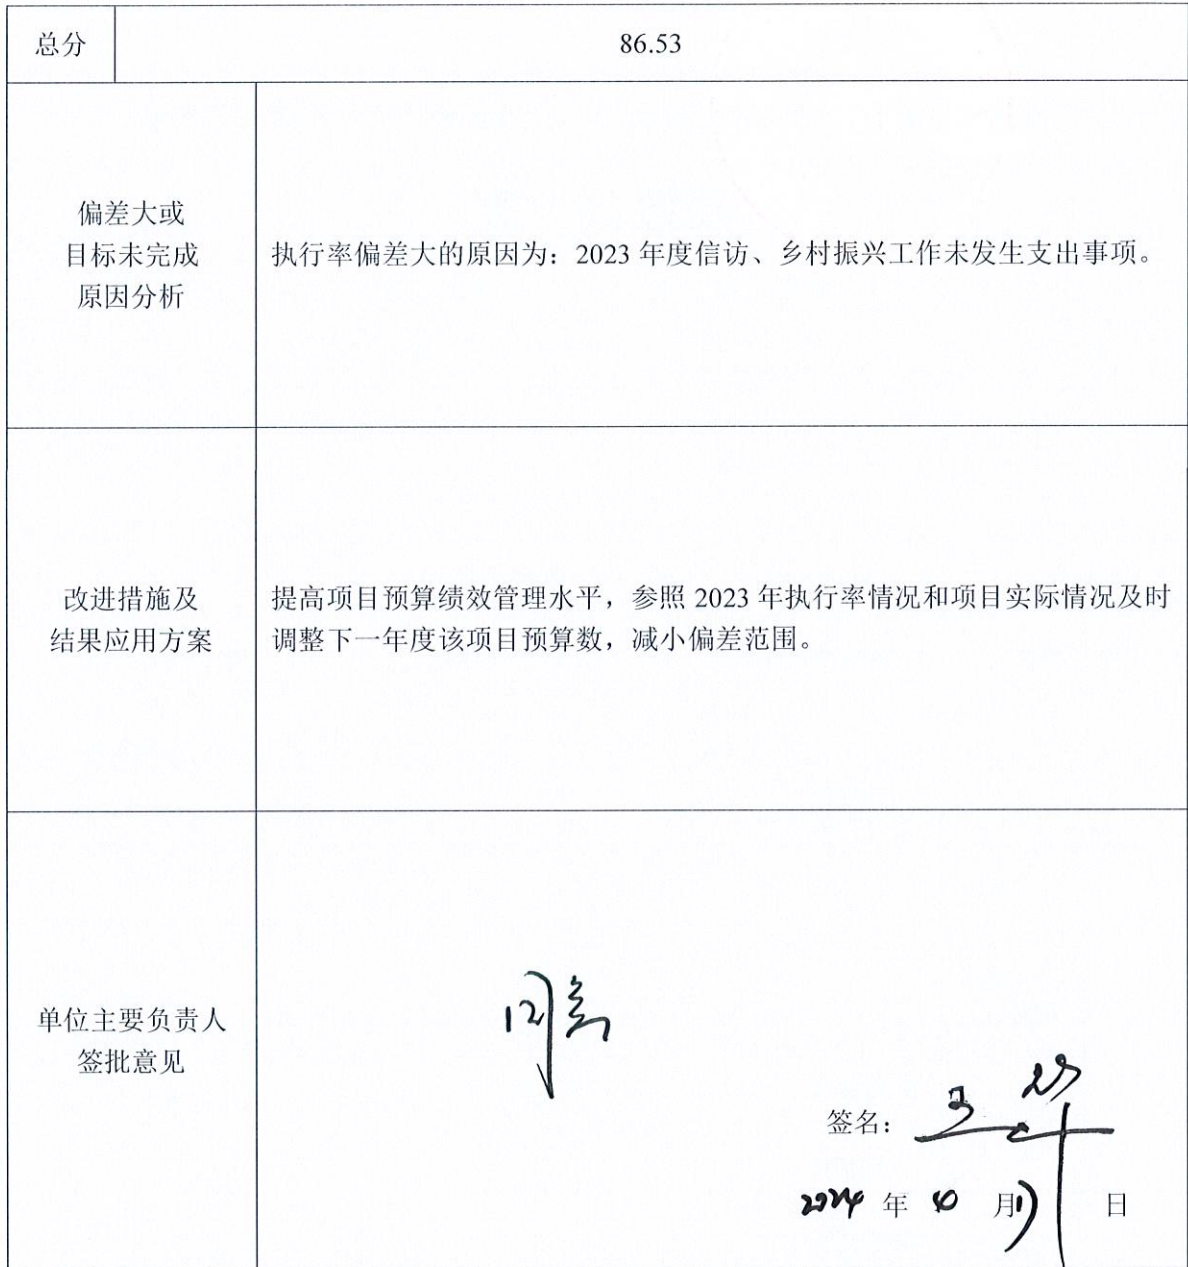 总分 86.53
偏差大或
目标未完成
原因分析
执行率偏差大的原因为：2023 年度信访、乡村振兴工作未发生支出事项。
改进措施及
结果应用方案
提高项目预算绩效管理水平，参照 2023 年执行率情况和项目实际情况及时
调整下一年度该项目预算数，减小偏差范围。
单位主要负责人
签批意见
同意
签名：
2024 年 月 日